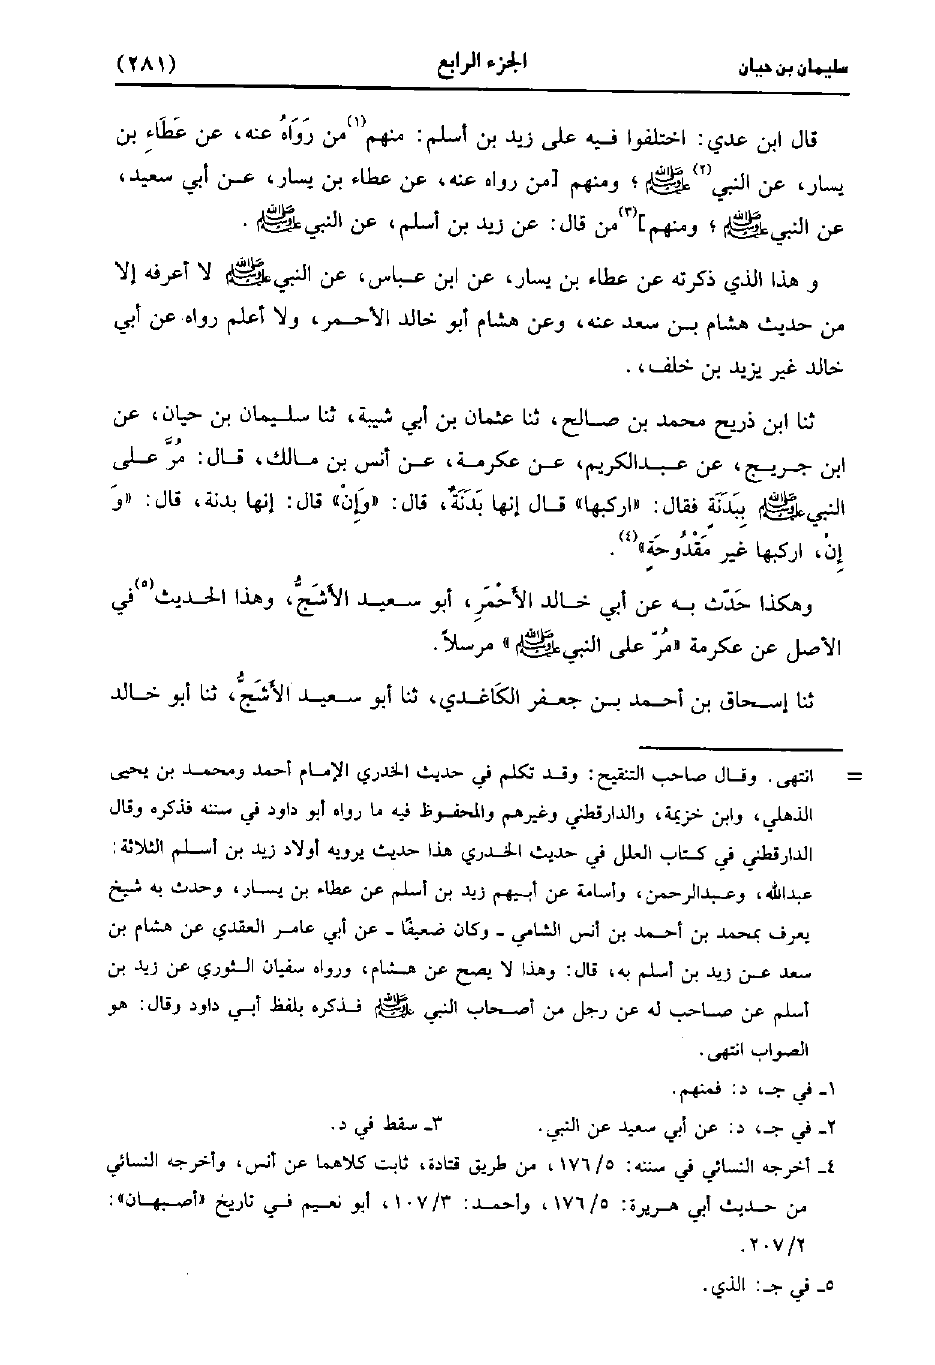 سليمان بن حيان الجزء الرابع (٢٨١)
قال ابن عدي: اختلفوا فـيه على زيد بن أسلم: منهم(١) من رَوَاهُ عنه، عن عَطَاءِ بن
يسار، عن النبي(٢)ﷺ؛ ومنهم [من رواه عنه، عن عطاء بن يسار، عـن أبي سعيد،
عن النبيﷺ؛ ومنهم](٣)من قال: عن زيد بن أسلم، عن النبيﷺ.
و هذا الذي ذكرته عن عطاء بن يسار، عن ابن عباس، عن النبيﷺ لا أعرفه إلا
من حديث هشام بـن سعد عنه، وعن هشام أبو خالد الأحـمر، ولا أعلم رواه عن أبي
خالد غير يزيد بن خلف، .
ثنا ابن ذريح محمد بن صـالح، ثنا عثمان بن أبي شيبة، ثنا سلـيمان بن حيان، عن
ابن جـريـج، عن عبـدالكريم، عـن عكرمـة، عـن أنس بن مـالك، قـال: مُرَّ علـى
النبيﷺ بِبَدَنَةٍ فقال: «اركبها» قـال إنها بَدَنَةٌ، قال: «وَإِنْ» قال: إنها بدنة، قال: «وَ
إِنْ، اركبها غير مَقْدُوحَةٍ»(٤).
وهكذا حَدَّث بـه عن أبي خـالد الأَحْمَرِ، أبو سـعيـد الأَشَجُّ، وهذا الحديث(٥)في
الأصل عن عكرمة «مُرّ على النبيﷺ» مرسلاً.
ثنا إسـحاق بن أحـمد بـن جعـفر الكَاغَدي، ثنا أبو سـعيـد الأَشَجُّ، ثنا أبو خـالد
= انتهى. وقـال صاحب التنقيح: وقـد تكلم في حديث الخدري الإمـام أحمد ومحمـد بن يحيى
الذهلي، وابن خزيمة، والدارقطني وغيرهم والمحفـوظ فيه ما رواه أبو داود في سننه فذكره وقال
الدارقطني في كـتاب العلل في حديث الخدري هذا حديث يرويه أولاد زيد بن أسـلم الثلاثة:
عبدالله، وعبدالرحمن، وأسامة عن أبـيهم زيد بن أسلم عن عطاء بن يسـار، وحدث به شيخ
يعرف بمحمد بن أحـمد بن أنس الشامي ـ وكان ضعيفًا ـ عن أبي عامر العقدي عن هشام بن
سعد عـن زيد بن أسلم به، قال: وهذا لا يصح عن هـشام، ورواه سفيان الثوري عن زيد بن
أسلم عن صـاحب له عن رجل من أصـحاب النبي ﷺ فـذكره بلفظ أبـي داود وقال: هو
الصواب انتهى.
١ـ في جـ، د: فمنهم.
٢ـ في جـ، د: عن أبي سعيد عن النبي. ٣ـ سقط في د.
٤ـ أخرجه النسائي في سننه: ١٧٦/٥، من طريق قتادة، ثابت كلاهما عن أنس، وأخرجه النسائي
من حـديث أبي هـريرة: ١٧٦/٥، وأحمـد: ١٠٧/٣، أبو نعـيم فـي تاريخ «أصـبهـان»:
٢٠٧/٢.
٥ـ في جـ: الذي.